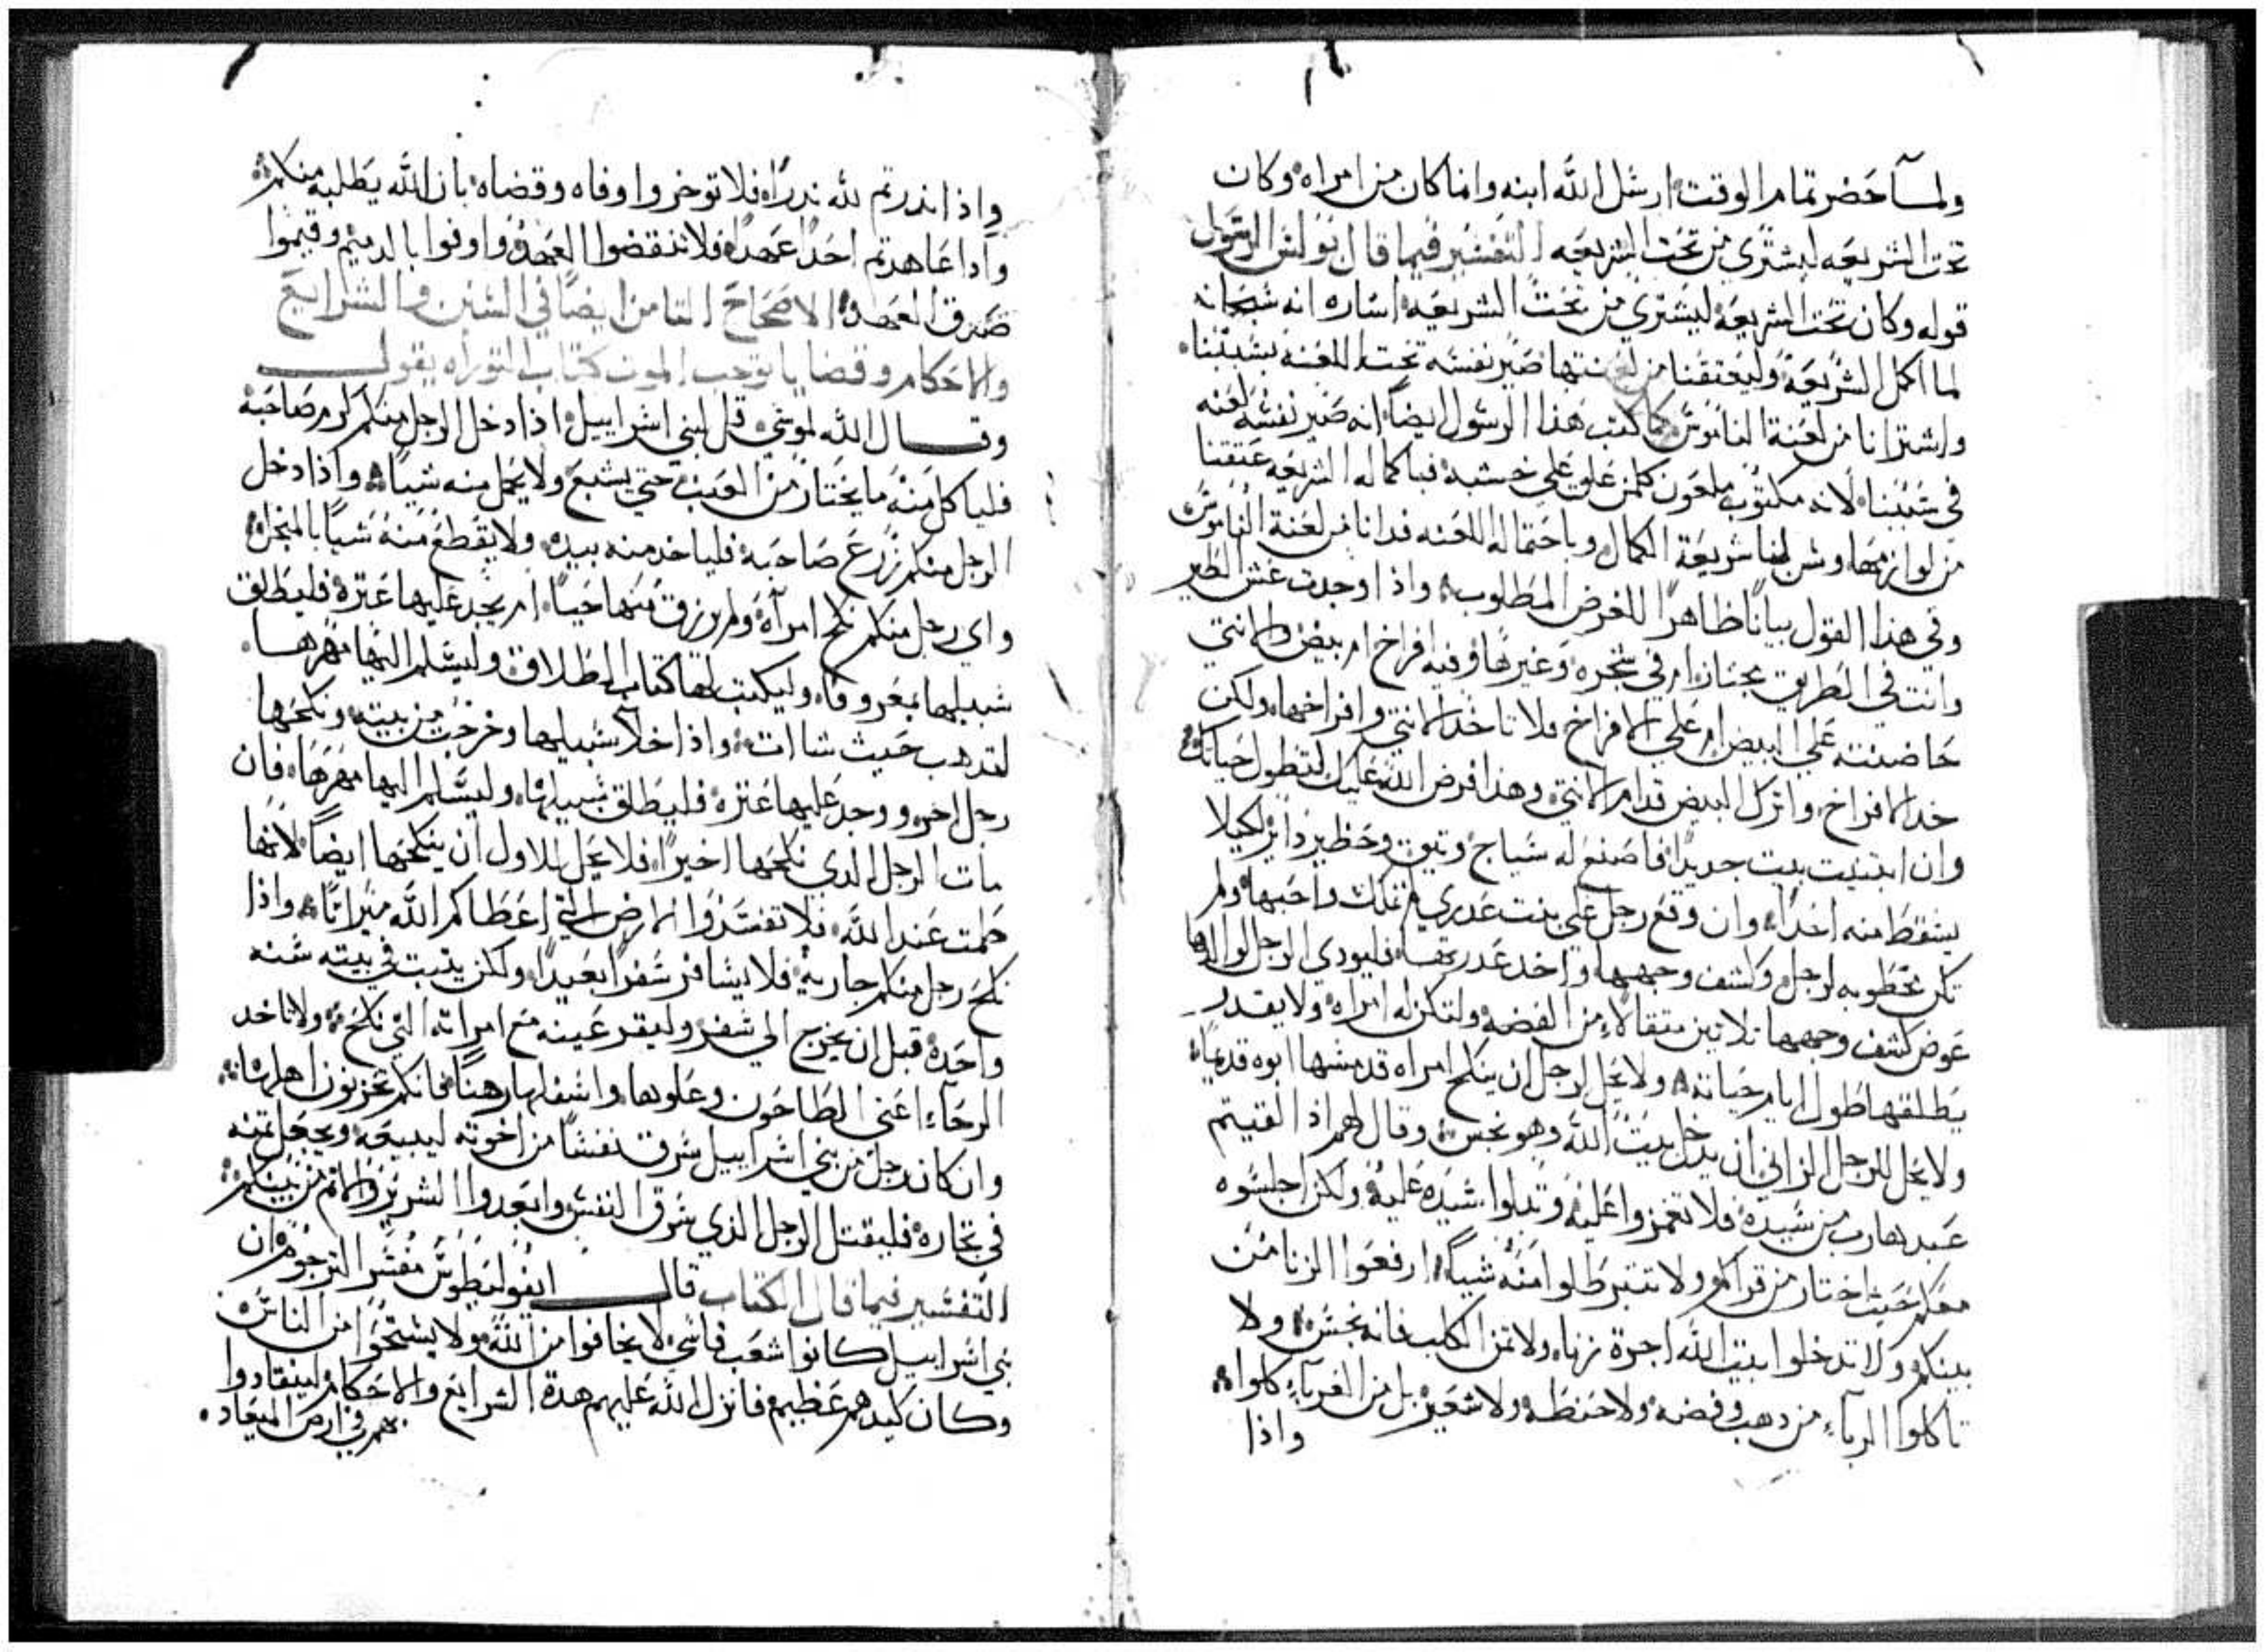 ولمآ حَضر تمام الوقت ارسَل الله ابنه وانما كان من امراه وكان
تحت الشريعه ليشتري من تحت الشريعه التفسير فيما قال بولس الرسَول
قوله وكان تحت الشريعه ليشتري من تحت الشريعه اشاره انه سُبحانه
لما اكمل الشريعه وليعتقنا من لعنتها صَير نفسَه تحت اللعنه بسَببنا
واشترانا من لعنة الناموسَ كما كتب هذا الرسَول ايضاً انه صَير نفسَه لعنه
في سَببنا لانه مكتوب ملعَون كلمن علق علي خشبه فباكماله الشريعه عتقنا
من لوازمها وسن لنا شريعَة الكمال وباحتماله اللعنه فدانا من لعنة الناموسَ
وفي هذا القول بيانًا ظاهراً للغرض المطلوب واذا وجدت عَش الطير
وانت في الطريق مجتاز ام في شجره وغيرها وفيه افراخ ام بيض والانتي
حَاضنته علي البيض ام عَلي الافراخ فلا تاخد الانتي وافراخها ولكن
خد الافراخ واترك البيض قدام الانتي وهذا فرض الله عَليك لتطول حَياتك
وان ابتنيت بيت جديدًا فاصنع له سَياج وتيق وحَظير داير لكيلا
يسَقط منه احَداً وان وقع رجل علي بنت عَدري لم تملك واحَبها ولم
تكن مخطوبه لرجل وكشف وجهها واخد عَدرتها فليودي الرجل لوالدها
عَوض كشف وجهها تلاتين متقالاً من الفضه ولتكن له امراه ولا يقدر
يطلقها طول ايام حَياته ولا يحَل لرجل ان ينكح امراه قد مسَها ابوه قديماً
ولا يحَل للرجل الزاني ان يدخل بيت الله وهو نجس وقال لهم اذا لقيتم
عَبد هارب من سَيده فلا تغمزوا عَليه وتدلوا سَيده عَليه ولكن اجلسَوه
معَكم حَيث اختار من قراكم ولا تتبرطلوا منه شياً ارفعَوا الزنا من
بينكم ولا تدخلوا بيت الله اجرة زناه ولا تمن الكلب فانه نجسَ ولا
تاكلوا الربآء من دهب وفضه ولا حَنطه ولا شعَير بل من الغربآء كلوا
واذا
واذا نذرتم لله ندراً فلا توخروا وفاه وقضاه بان الله يَطلبه منكم
وادا عَاهدتم احَداً عَهداً فلا تنقضوا العَهد واوفوا بالدمم وقيموا
صَدق العَهد الاصَحاحَ التامن ايضاً في السَنن والشرايعَ
والاحَكام وقضايا توجب الموت كتاب التوراه يقول
وقال الله لموسَي قل لبني اسَراييل اذا دخل الرجل منكم كرم صَاحَبه
فلياكل منه ما يختار من العَنب حَتي يشبعَ ولا يحَمل منه شياً واذا دخل
الرجل منكم زرعَ صَاحَبه فلياخد منه بيده ولا يقطعَ منه شياً بالمنجل
واي رجل منكم نكح امرآه ولم يرزق منها حَباً ام يجد عَليها عَتره فليطلق
سَبيلها بمعروف وليكتب لها كتاب الطلاق وليسَلم اليها مهرها
لتدهب حَيث شاات واذا خلآ سَبيلها وخرجت من بيته ونكحَها
رجل اخر ووجد عَليها عَتره فليطلق سَبيلها وليسَلم اليها مهرَهَا فان
مات الرجل الدي نكحَها اخيراً فلا يحَل للاول ان ينكحَها ايضاً لانها
حَرمت عَند الله فلا تفسَدوا الارض التي اعطاكم الله ميراتًا واذا
نكحَ رجل منكم جاريه فلا يسَافر سَفراً بعَيداً ولكن يتبت في بيته سَنه
واحَدة قبل ان يخرج الي سَفر وليقر عَينه معَ امراته التي نكحَ ولا تاخد
الرحَآء اعَني الطاحَون وعَلوها واسَفلها رهناً فانكم تحَزنون اهلها
وان كان رجل من بني اسَراييل سَرق نفسَاً من اخوته ليبيعَه ويجعَل تمنه
في تجاره فليقتل الرجل الذي سَرق النفسَ وابعَدوا الشرير والاتم من بينكم
التفسَير فيما قال الكتاب قال ايفوليطوسَ مفسَر الترجوم ان
بني اسَراييل كانوا شعَب قاسَي لا يخافوا من الله ولا يسَتحَوا من الناسَ
وكان كيدهم عَظيم فانزل الله عَليهم هدة الشرايعَ والاحَكام لينقادوا
بهم في ارض الميعَاد